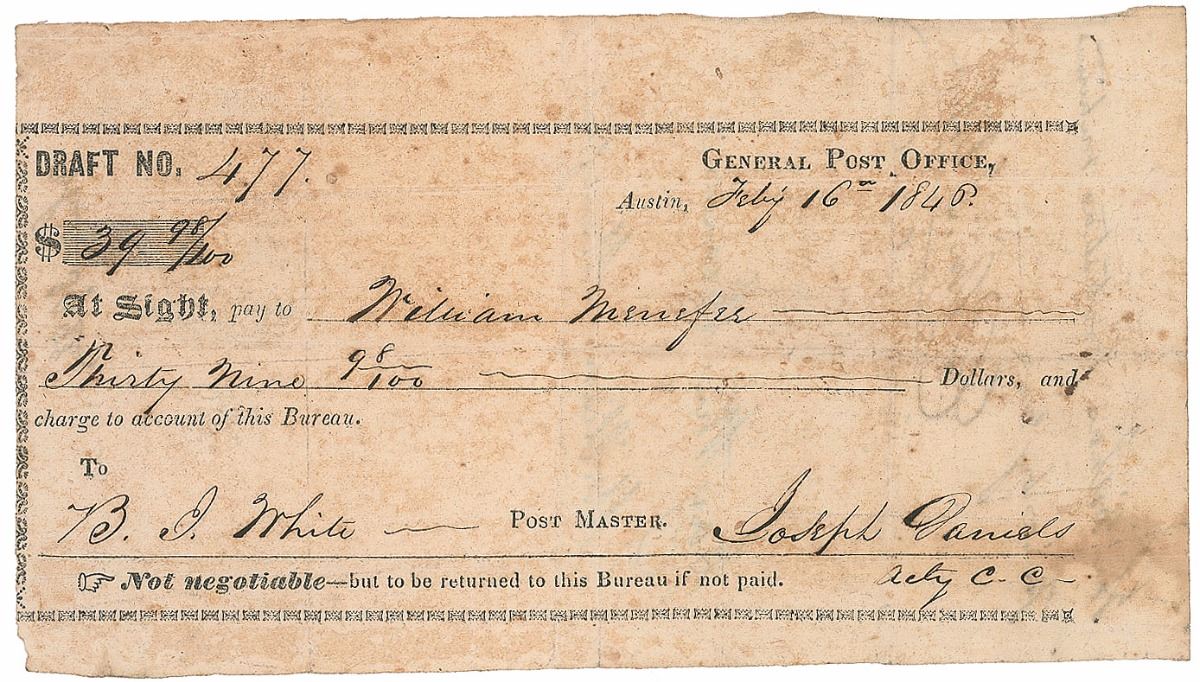 DRAFT NO. 477.
GENERAL POST OFFICE,
Austin, Feby 16th 1846.
$ 39 98/100
At Sight, pay to William Menefee
Thirty Nine 98/100 Dollars, and
charge to account of this Bureau.
To
B. J. White POST MASTER. Joseph Daniels
Not negotiable—but to be returned to this Bureau if not paid. Actg C. C.